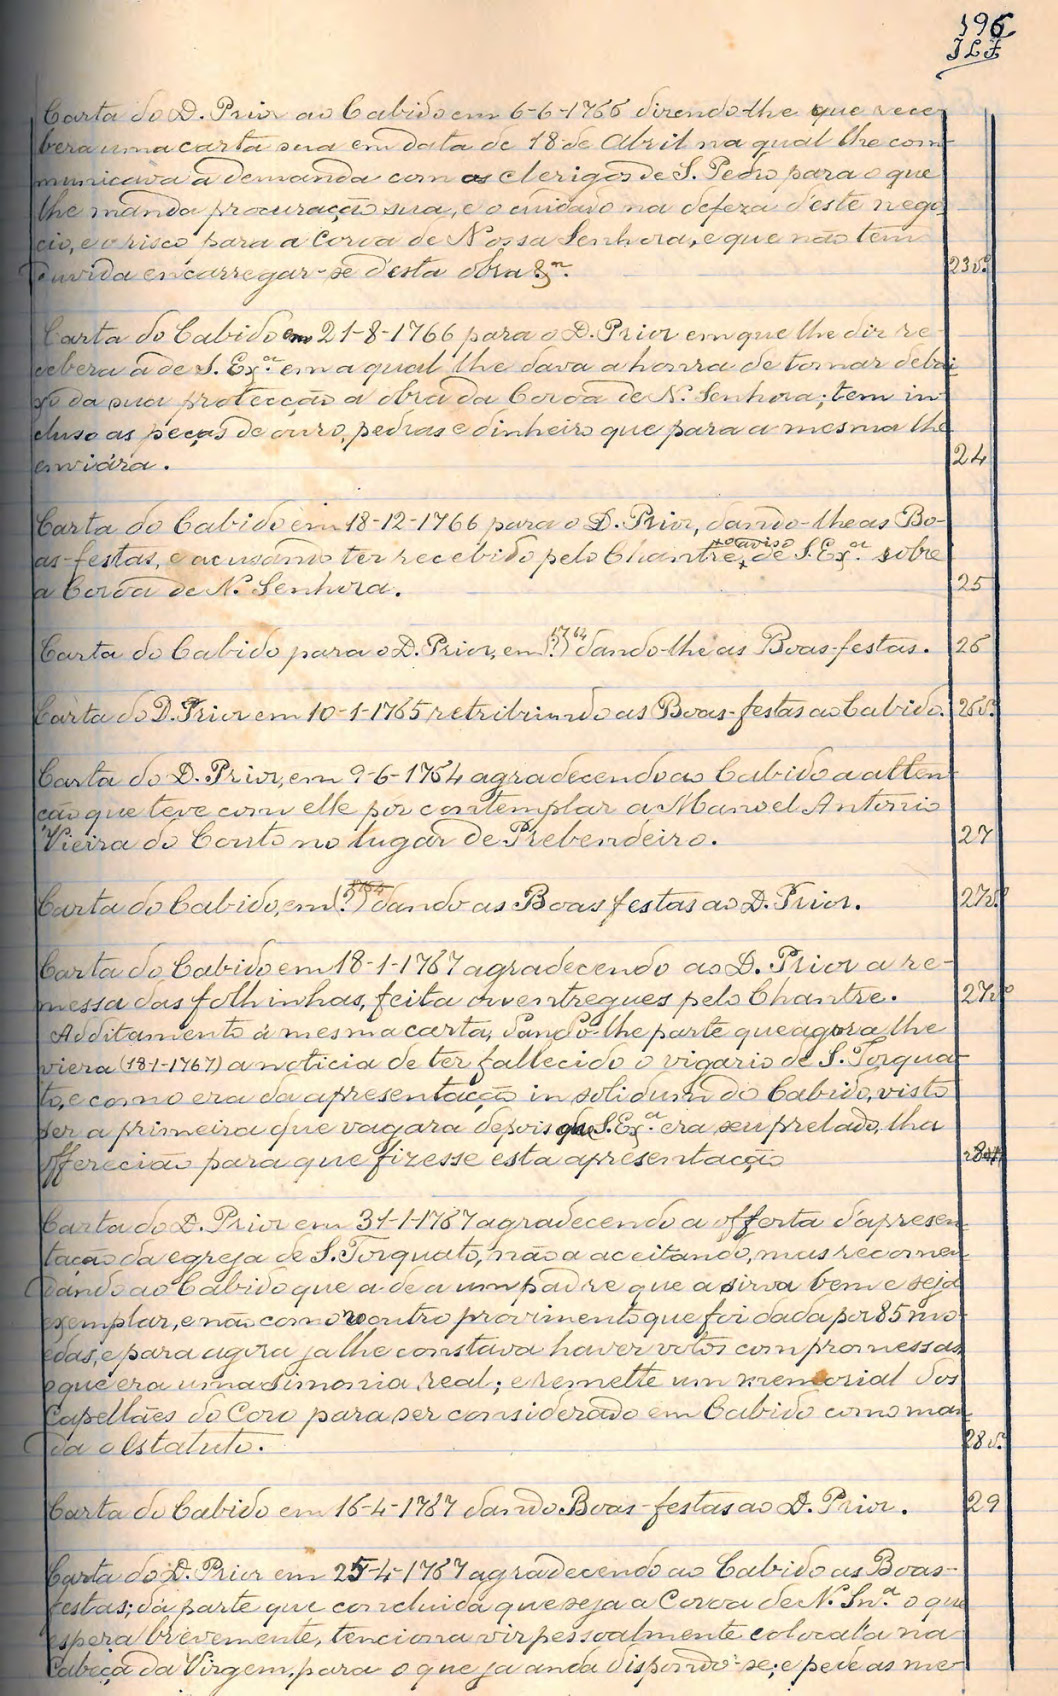 196
JLF
Carta do D. Prior ao Cabido em 6-6-1766 dizendo-lhe que rece-
bera uma carta sua em data de 18 de Abril na qual lhe com-
municava a demanda com os clerigos de S. Pedro para o que
lhe manda procuração sua, e o cuidado na defeza d'este nego-
cio, e o risco para a Coroa de Nossa Senhora, e que não tem
duvida encarregar-se d'esta obra &.
23v.º
Carta do Cabido em 21-8-1766 para o D. Prior em que lhe diz re-
cebera a de S. Ex.ª em a qual lhe dava a honra de tomar debai-
xo da sua protecção a obra da Coroa de N.ª Senhora; tem in-
cluso as peças de ouro, pedras e dinheiro que para a mesma lhe
enviára.
24
Carta do Cabido em 18-12-1766 para o D. Prior, dando-lhe as Bo-
as-festas, e acusando ter recebido pelo Chantre, o aviso de S. Ex.ª sobre
a Coroa de N.ª Senhora.
25
Carta do Cabido para o D. Prior, em (?) 1764 dando-lhe as Boas-festas.
26
Carta do D. Prior em 10-1-1765 retribuindo as Boas-festas ao Cabido.
26v.º
Carta do D. Prior, em 9-6-1764 agradecendo ao Cabido a atten-
ção que teve com elle por contemplar a Manoel Antonio
Vieira do Couto no lugar de Prebendeiro.
27
Carta do Cabido, em (?) dando as Boas festas ao D. Prior.
27v.º
Carta do Cabido em 18-1-1767 agradecendo ao D. Prior a re-
messa das folhinhas, feita entregues pelo Chantre.
27v.º
Additamento á mesma carta, dando-lhe parte que agora lhe
viera (18-1-1767) a noticia de ter fallecido o vigario de S. Torqua-
to, e como era da apresentação in solidum do Cabido, visto
ser a primeira que vagara depois que S. Ex.ª era seu prelado, lha
offerecião para que fizesse esta apresentação
28
Carta do D. Prior em 31-1-1767 agradecendo a offerta d'apresen-
tação da egreja de S. Torquato, não a aceitando, mas recomen-
dando ao Cabido que a de a um padre que a sirva bem e seja
exemplar, e não como no outro provimento que foi dada por 85 mo-
edas, e para agora ja lhe constava haver votos com promessas
o que era uma simonia real; e remette um memorial dos
Capellães do Coro para ser considerado em Cabido como man-
da o Estatuto.
28v.º
Carta do Cabido em 16-4-1767 dando Boas-festas ao D. Prior.
29
Carta do D. Prior em 25-4-1767 agradecendo ao Cabido as Boas-
festas; dá parte que concluida que seja a Coroa de N. Snr.ª o que
espera brevemente, tenciona vir pessoalmente colocal'a na
Cabeça da Virgem, para o que ja anda dispondo-se; e pede as me-